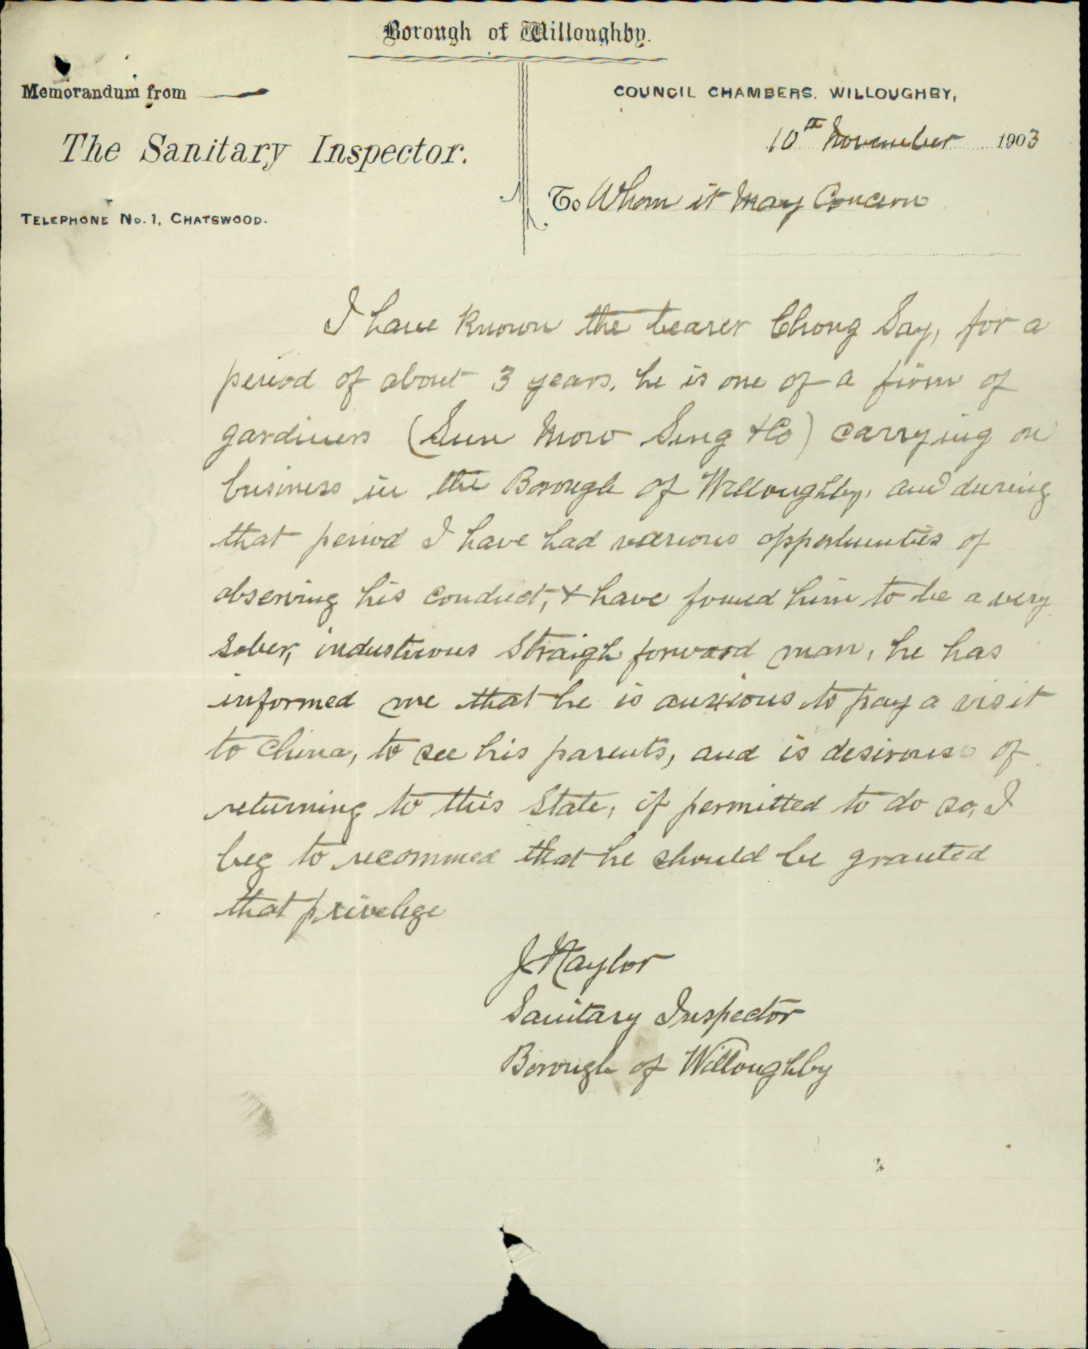 Borough of Willoughby.
Memorandum from
COUNCIL CHAMBERS, WILLOUGHBY,
The Sanitary Inspector.
10th November 1903
To Whom it May Concern
TELEPHONE No. 1, CHATSWOOD.
I have known the bearer Chong Say, for a
period of about 3 years, he is one of a firm of
gardiners (Sun Mow Sing & Co) carrying on
business in the Borough of Willoughby, and during
that period I have had various opportunities of
observing his conduct, & have found him to be a very
sober, industrious straigh forward man, he has
informed me that he is anxious to pay a visit
to China, to see his parents, and is desirous of
returning to this State, if permitted to do so, I
beg to recommed that he should be granted
that privelege
J Naylor
Sanitary Inspector
Borough of Willoughby